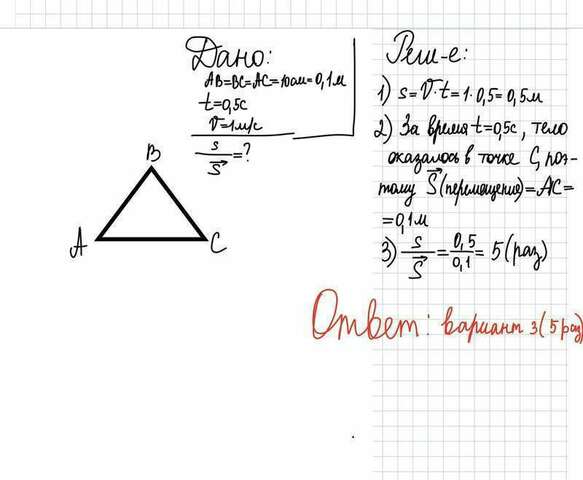 Дано:
AB=BC=AC=10см=0,1м
t=0,5с
V=1м/с
s/S⃗=?
B
A
C
Реш-е:
1) s=V·t=1·0,5=0,5м
2) За время t=0,5с, тело
оказалось в точке C, поэ-
тому S⃗(перемещение)=AC=
=0,1м
3) s/S⃗=0,5/0,1=5(раз)
Ответ: вариант 3(5раз)